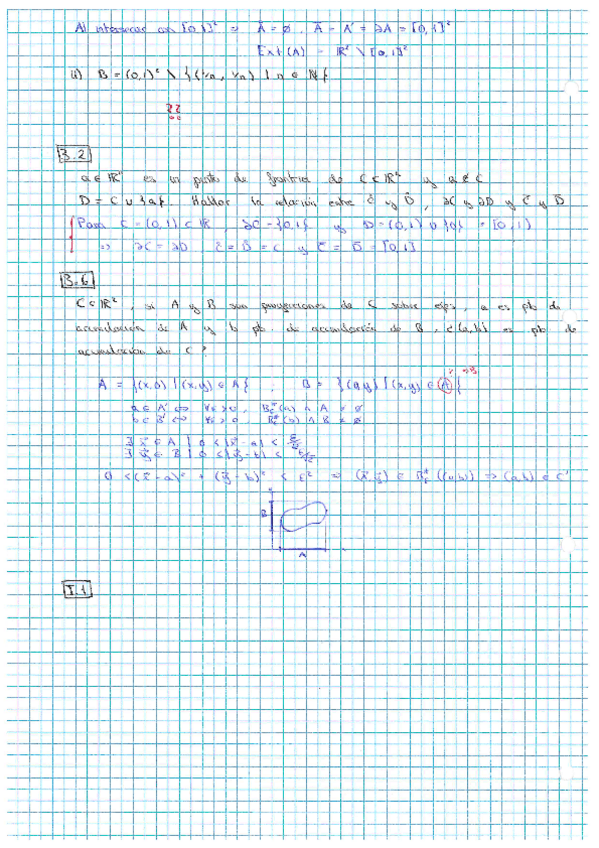 Al intersecar con [0,1]² ⇒ Å = ∅ . Ā = A' = ∂A = [0,1]²
Ext(A) = ℝ² \ [0,1]²
ii) B = (0,1)² \ {(1/n, 1/n) | n ∈ ℕ}
??
3.2
a ∈ ℝ² es un punto de frontera de C ⊂ ℝ² y a ∉ C
D = C ∪ {a}. Hallar la relación entre C̊ y D̊, ∂C y ∂D y C̄ y D̄
Para C = (0,1) ⊂ ℝ, ∂C = {0,1} y D = (0,1) ∪ {0} = [0,1)
⇒ ∂C = ∂D C̊ = D̊ = C y C̄ = D̄ = [0,1]
3.6
C ⊂ ℝ², si A y B son proyecciones de C sobre ejes, a es pto de
acumulación de A y b pto. de acumulación de B, ¿(a,b) es pto de
acumulación de C?
A = {(x,0) | (x,y) ∈ A} , B = {(0,y) | (x,y) ∈ A}
a ∈ A' ⇔ ∀ε>0, B*ε(a) ∩ A ≠ ∅
b ∈ B' ⇔ ∀ε>0, B*ε(b) ∩ B ≠ ∅
∃ x̃ ∈ A | 0 < |x̃ - a| < ε/√2
∃ ỹ ∈ B | 0 < |ỹ - b| < ε/√2
0 < (x̃ - a)² + (ỹ - b)² < ε² ⇒ (x̃, ỹ) ∈ B*ε((a,b)) ⇒ (a,b) ∈ C'
B
A
I.1